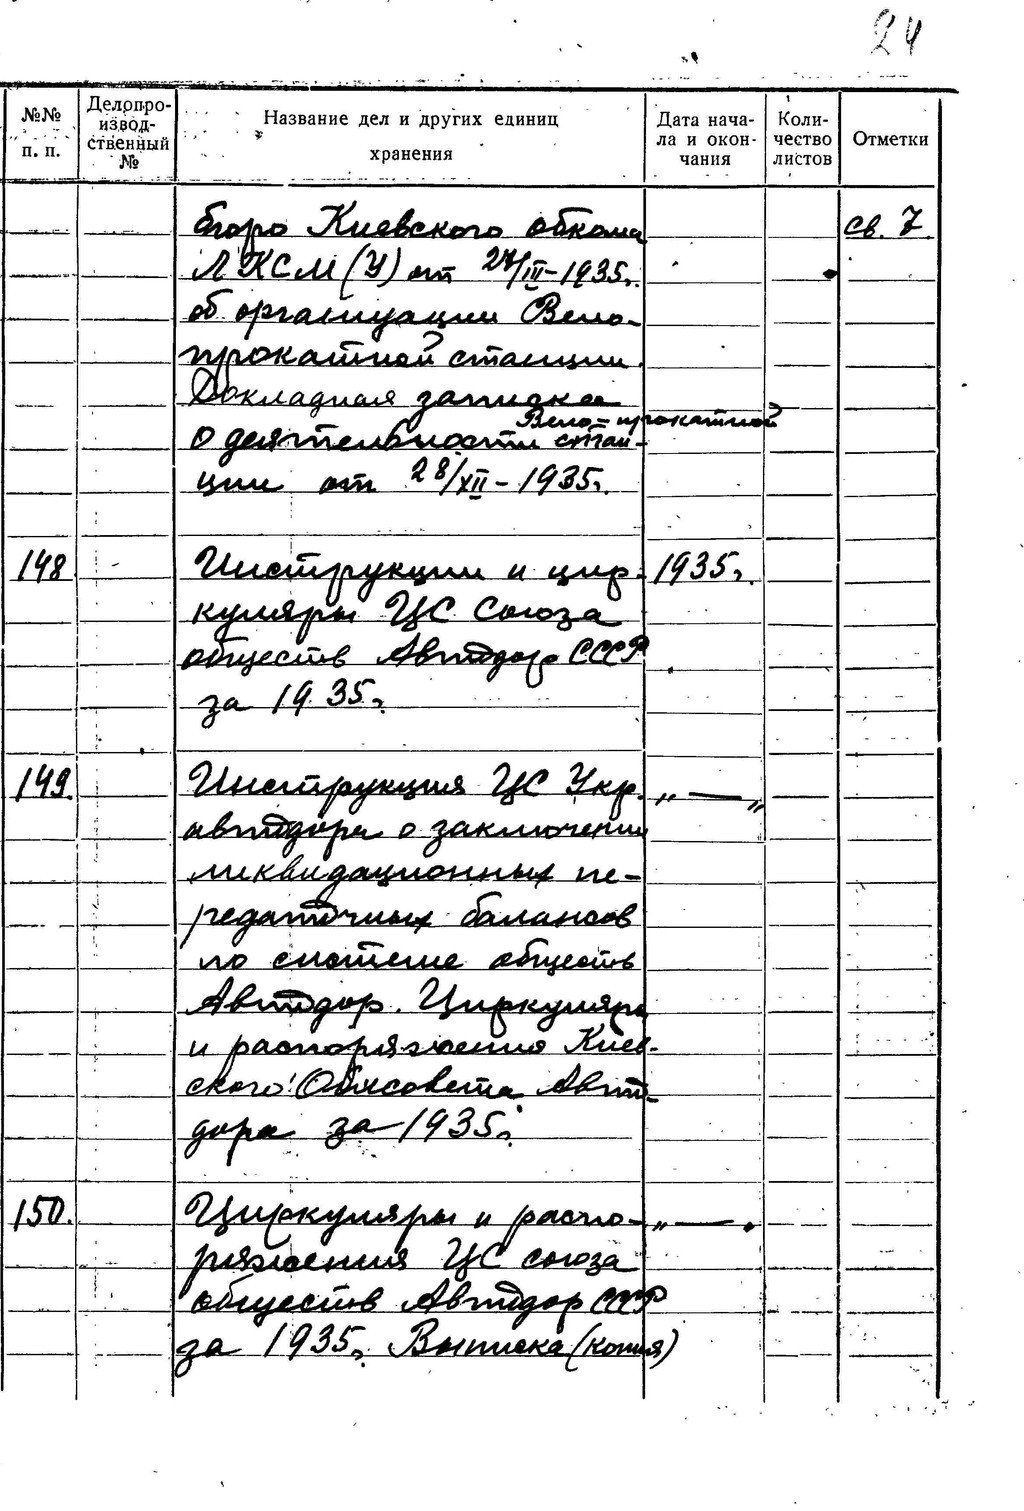 24
№№ п. п.
Делопро-
извод-
ственный
№
Название дел и других единиц
хранения
Дата нача-
ла и окон-
чания
Коли-
чество
листов
Отметки
бюро Киевского обкома св. 7
ЛКСМ(У) от 27/III-1935г.
об организации Вело-
прокатной станции.
Докладная записка
Вело-прокатной
о деятельности стан-
ции от 28/XII-1935г.
148 Инструкции и цир- 1935г.
куляры ЦС Союза
обществ Автодор СССР
за 1935г.
149. Инструкция ЦС Укр. „—„
автодора о заключении
ликвидационных пе-
редаточных балансов
по системе обществ
Автодор. Циркуляры
и распоряжения Киев-
ского Облсовета Авто-
дора за 1935г.
150. Циркуляры и распо- „—„
ряжения ЦС союза
обществ Автодор СССР
за 1935г. Выписка (копия)